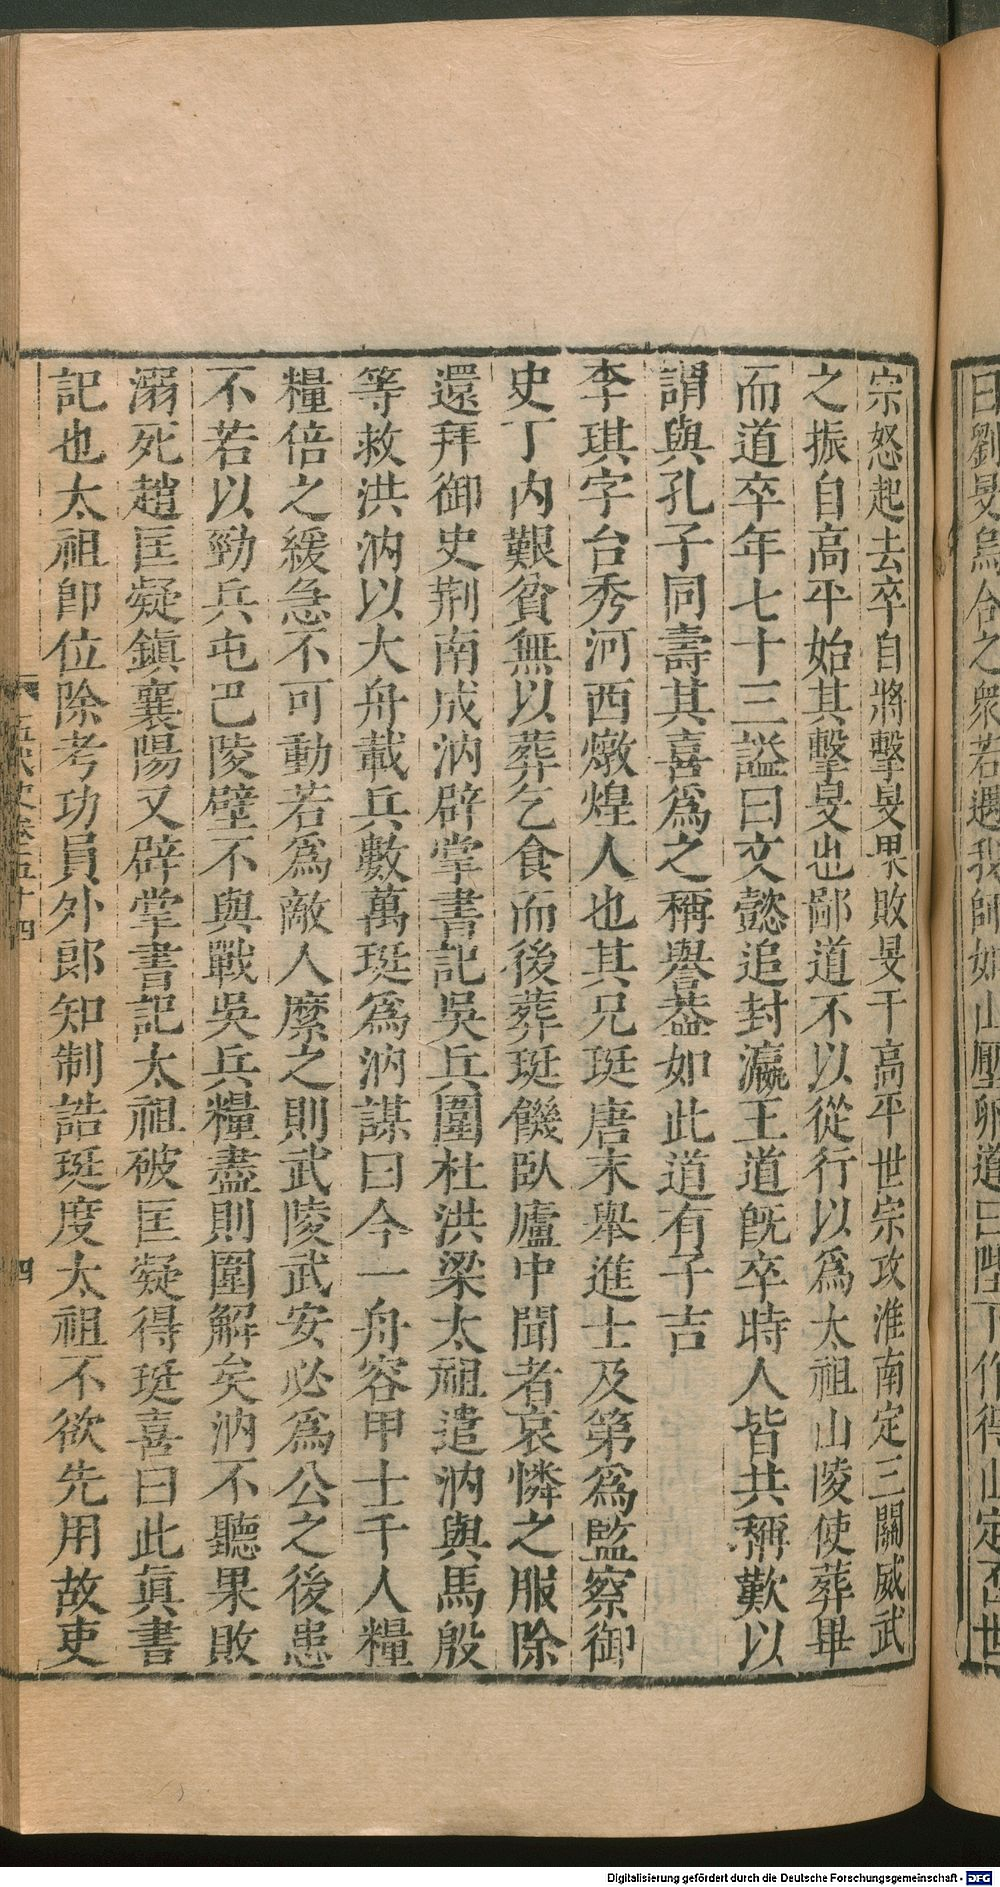 曰劉旻烏合之衆若遇我師如山壓卵道曰陛下作得山定否世
宗怒起去卒自將擊旻果敗旻于高平世宗攻淮南定三關威武
之振自高平始其擊旻也鄙道不以從行以爲太祖山陵使葬畢
而道卒年七十三謚曰文懿追封瀛王道旣卒時人皆共稱歎以
謂與孔子同壽其喜爲之稱譽葢如此道有子吉
李琪字台秀河西燉煌人也其兄珽唐末舉進士及第爲監察御
史丁內艱貧無以葬乞食而後葬珽饑臥廬中聞者哀憐之服除
還拜御史荆南成汭辟掌書記吳兵圍杜洪梁太祖遣汭與馬殷
等救洪汭以大舟載兵數萬珽爲汭謀曰今一舟容甲士千人糧
糧倍之緩急不可動若爲敵人縻之則武陵武安必爲公之後患
不若以勁兵屯巴陵壁不與戰吳兵糧盡則圍解矣汭不聽果敗
溺死趙匡凝鎮襄陽又辟掌書記太祖破匡凝得珽喜曰此眞書
記也太祖卽位除考功員外郞知制誥珽度太祖不欲先用故吏
五代史卷五十四
四
Digitalisierung gefördert durch die Deutsche Forschungsgemeinschaft - DFG